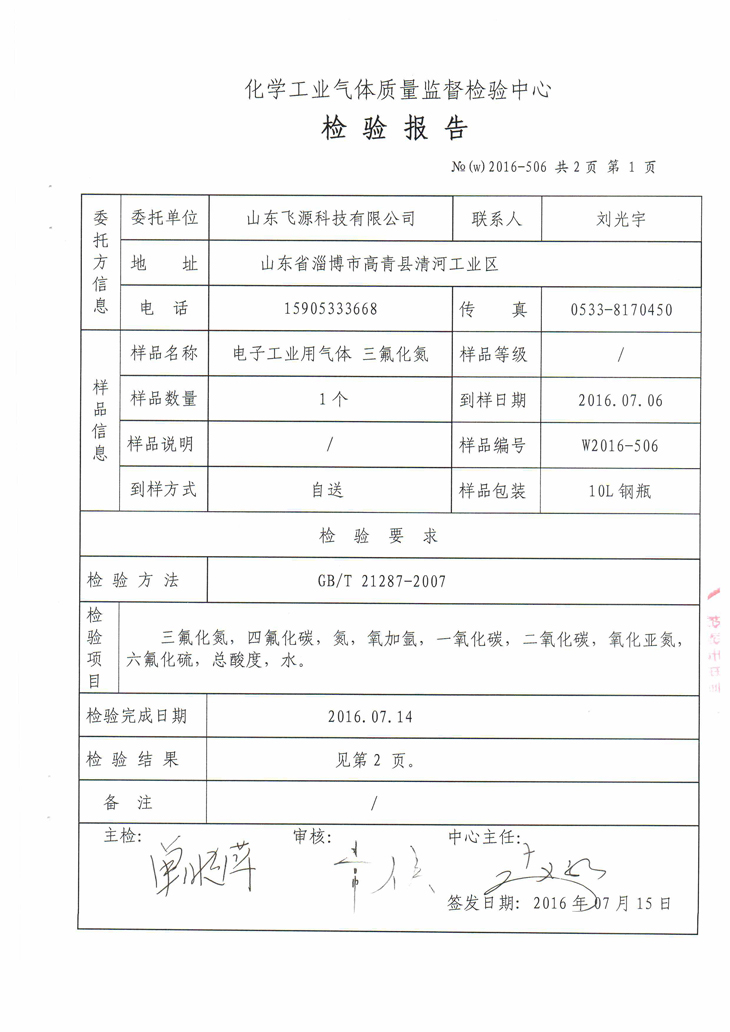 化学工业气体质量监督检验中心
检 验 报 告
№(w)2016-506 共2页 第 1 页
委托方信息
委托单位 山东飞源科技有限公司 联系人 刘光宇
地 址 山东省淄博市高青县清河工业区
电 话 15905333668 传 真 0533-8170450
样品信息
样品名称 电子工业用气体 三氟化氮 样品等级 /
样品数量 1个 到样日期 2016.07.06
样品说明 / 样品编号 W2016-506
到样方式 自送 样品包装 10L钢瓶
检 验 要 求
检 验 方 法 GB/T 21287-2007
检验项目
三氟化氮，四氟化碳，氮，氧加氩，一氧化碳，二氧化碳，氧化亚氮，
六氟化硫，总酸度，水。
检验完成日期 2016.07.14
检 验 结 果 见第2 页。
备 注 /
主检： 审核： 中心主任：
签发日期：2016年07月15日